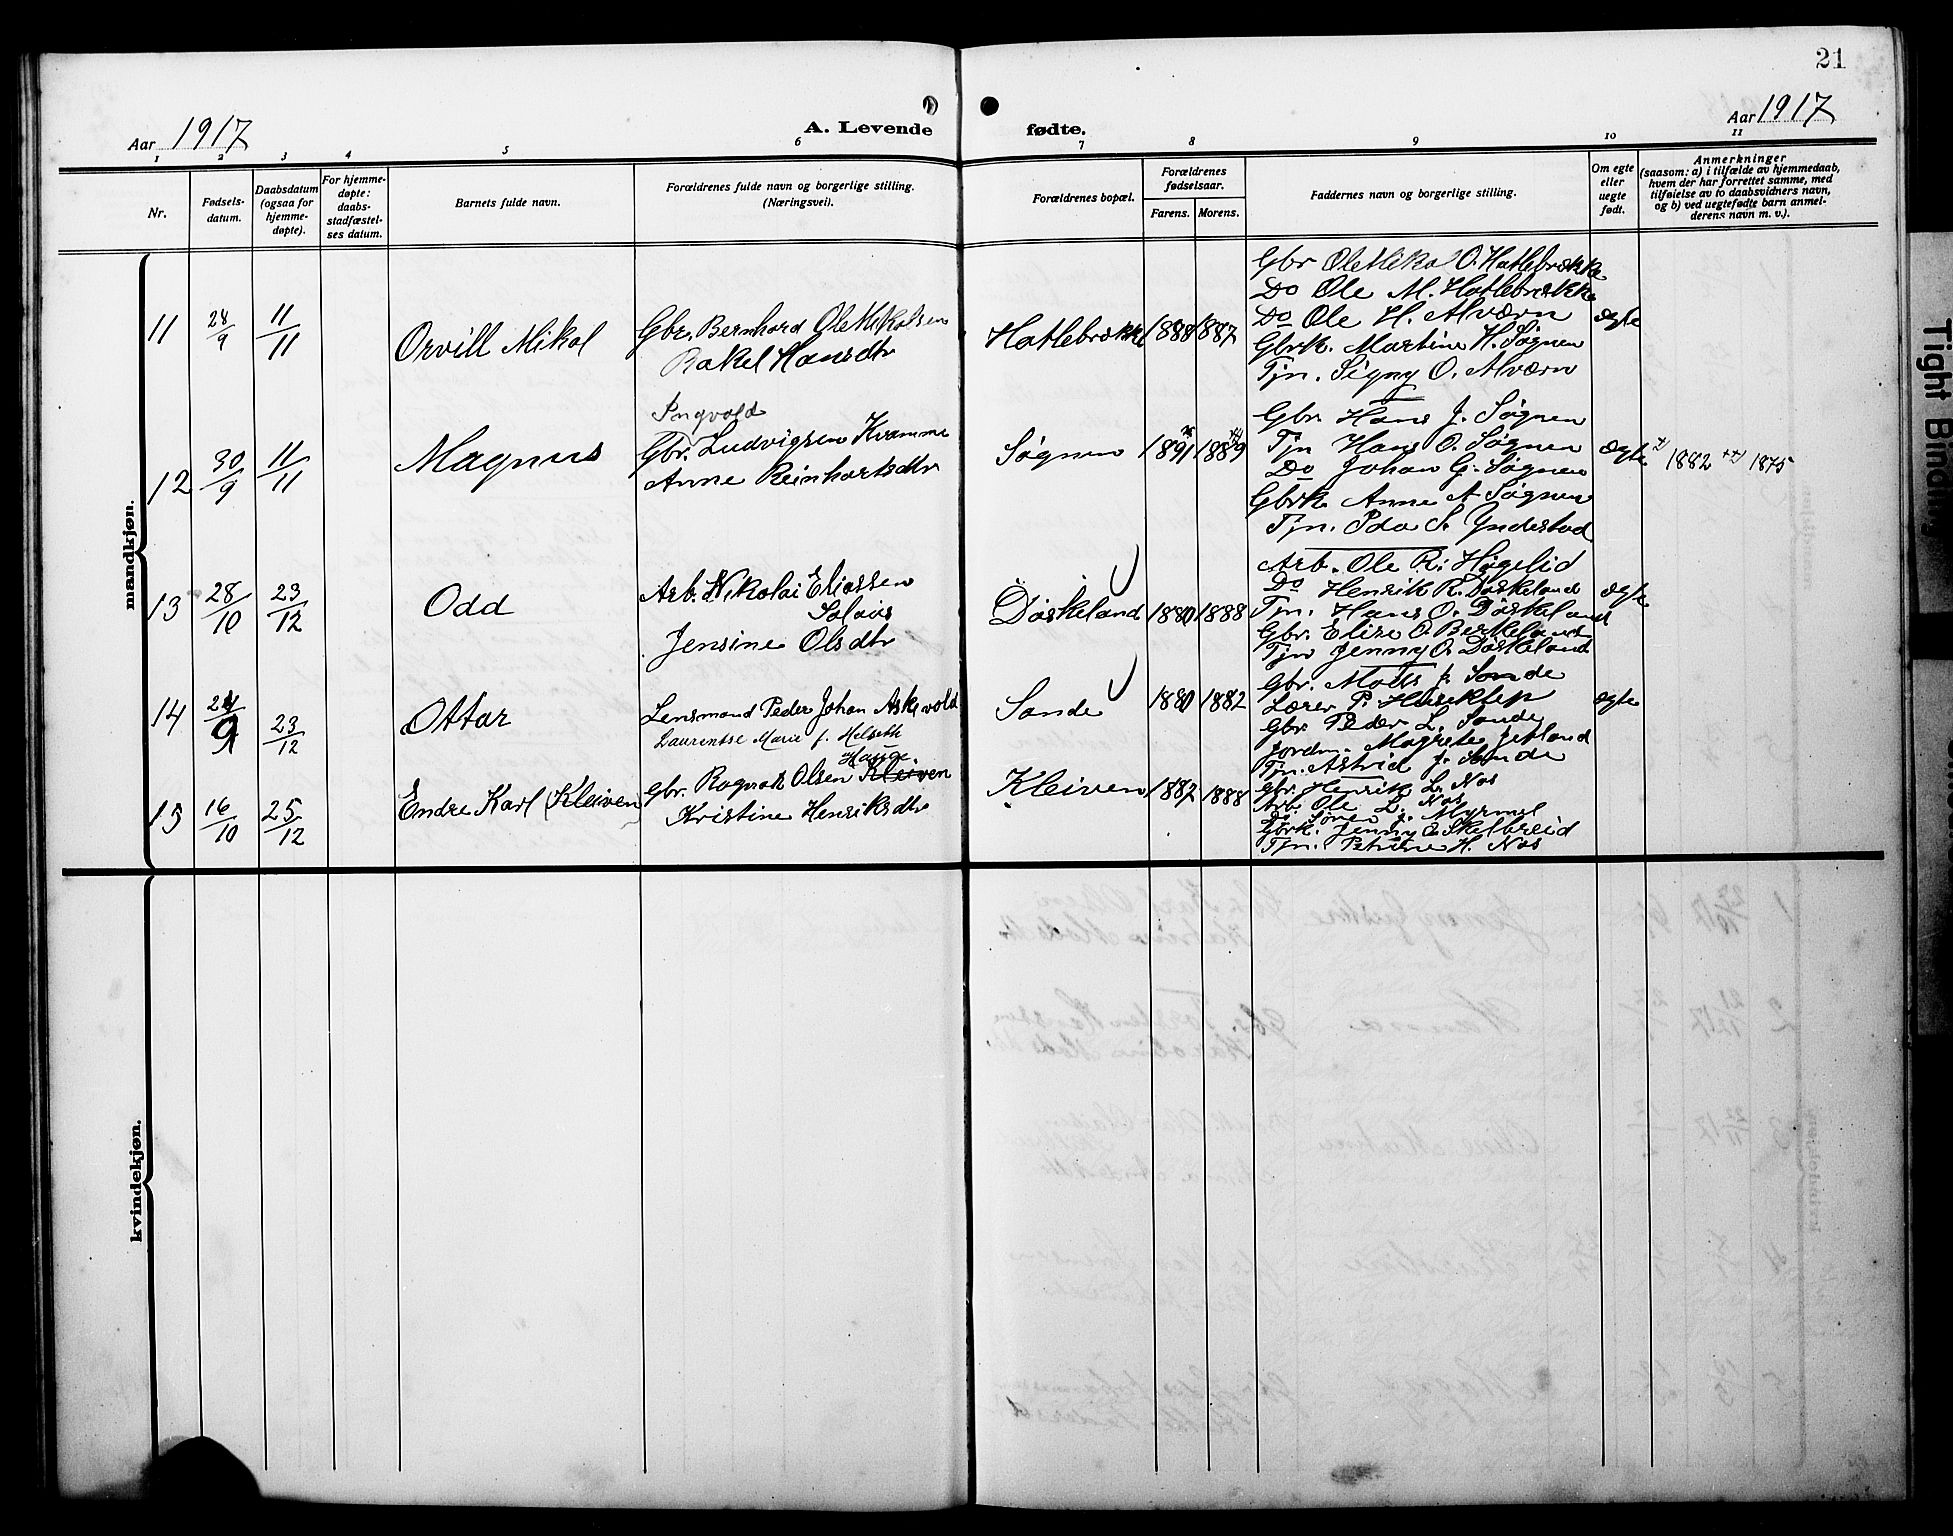 21
Aar 1917
A. Levende
fødte.
Aar 1917
1 2 3 4 5 6 7 8 9 10 11
Nr.
Fødsels-
datum.
Daabsdatum
(ogsaa for
hjemme-
døpte).
For hjemme-
døpte:
daabs-
stadfæstel-
ses datum.
Barnets fulde navn.
Forældrenes fulde navn og borgerlige stilling.
(Næringsvei).
Forældrenes bopæl.
Forældrenes
fødselsaar.
Farens. Morens.
Faddernes navn og borgerlige stilling.
Om egte
eller
uegte
født.
Anmerkninger
(saasom: a) i tilfælde av hjemmedaab,
hvem der har forrettet samme, med
tilføielse av to daabsvidners navn,
og b) ved uegtefødte barn anmel-
derens navn m. v.).
mandkjøn.
11 28/9 11/11 Orvill Mikal
Gbr. Bernhard OleMikalsen
Rakel Hansdtr
Hatlebrække 1888 1887
Gbr OleMikal O. Hatlebrække
Do Ole M. Hatlebrække
Do Ole H. Alværn
Gbrk. Martine H. Søgnen
Tjn. Signy O. Alværn
ægte
12 30/9 11/11 Magnus
Ingvald
Gbr. Ludvigsen Kvamme
Anne Reinhartsdtr
Søgnen 1891 1889
Gbr. Hans J. Søgnen
Tjn Hans O. Søgnen
Do Johan G. Søgnen
Gbrk. Anne A Søgnen
Tjn. Ida S. Yndestad
ægte
+) 1882 ++) 1875
13 28/10 23/12 Odd
Arb. Nikolai Eliassen
Solaas
Jensine Olsdtr
Døskeland 1880 1888
Arb. Ole R. Høgelid
Do Henrik R. Døskeland
Tjn. Hans O. Døskeland
Gbr. Elise O. Berkeland
Tjn Jenny O. Døskeland
ægte
14 24/9 23/12 Ottar
Lensmand Peder Johan Askevold
Laurentse Marie f. Helseth
Sande 1880 1882
Gbr. Mads J. Sande
Lærer P.
Gbr. Peder L. Sande
Jordm. Magrete Jetland
Tjn. Astrid J. Sande
ægte
15 16/10 25/12 Endre Karl (Kleiven)
Hauge
Gbr. Ragnvald Olsen Kleiven
Kristine Henriksdtr
Kleiven 1882 1888
Gbr. Henrik L. Nos
Arb. Ole L. Nos
Do Søren J. Myrmel
Gbrk. Jenny E Skelbreid
Tjn. Petrine H. Nos
kvindekjøn.
Tight Binding